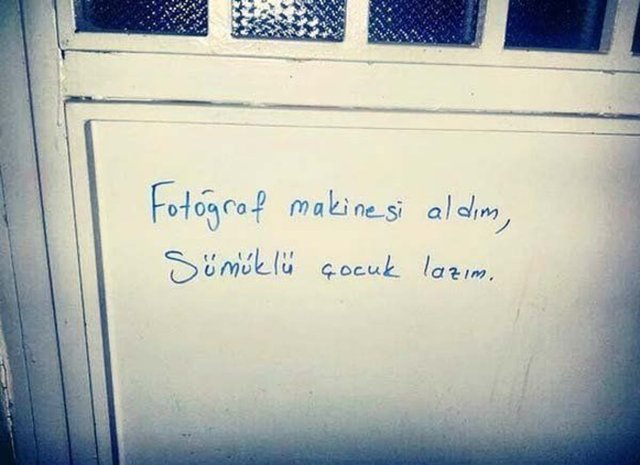 Fotoğraf makinesi aldım,
Sümüklü çocuk lazım.